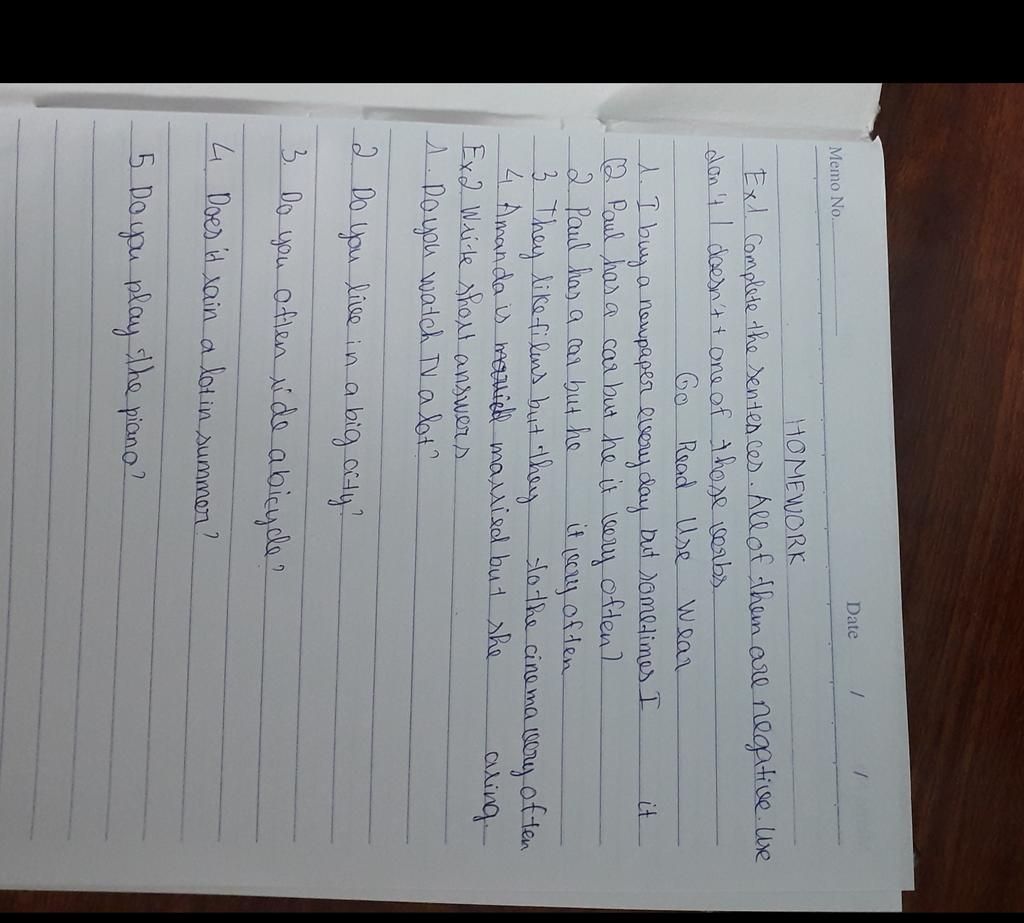 Memo No.
Date / /
HOMEWORK
Ex1 Complete the sentences. All of them are negative. Use
don't / doesn't + one of these verbs
Go Read Use Wear
1. I buy a newpaper every day but sometimes I it
(2 Paul has a car but he it very often)
2 Paul has a car but he it very often
3 They like films but they to the cinema very often
4 Amanda is married but she a ring.
Ex2 Write short answers
1. Do you watch TV a lot?
2 Do you live in a big city?
3 Do you often ride a bicycle?
4 Does it rain a lot in summer?
5 Do you play the piano?